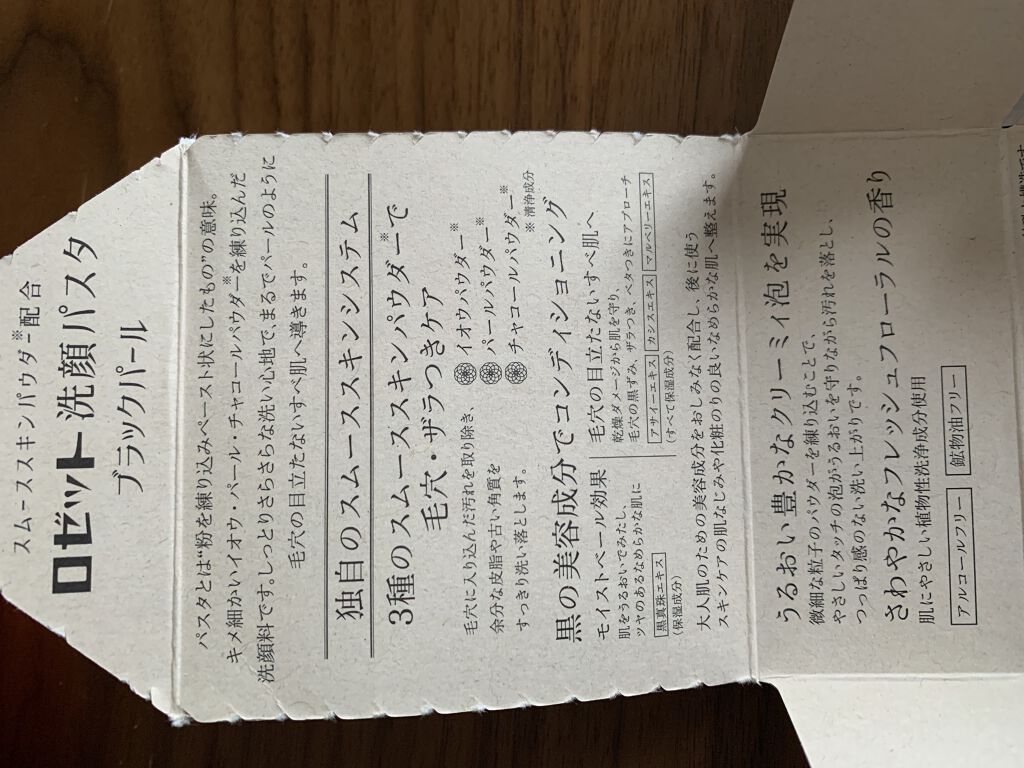 スムーススキンパウダー※配合
ロゼット洗顔パスタ
ブラックパール
パスタとは“粉を練り込みペースト状にしたもの”の意味。
キメ細かいイオウ・パール・チャコールパウダー※を練り込んだ
洗顔料です。しっとりさらさらな洗い心地で、まるでパールのように
毛穴の目立たないすべ肌へ導きます。
独自のスムーススキンシステム
3種のスムーススキンパウダー※で
毛穴・ザラつきケア
毛穴に入り込んだ汚れを取り除き、
余分な皮脂や古い角質を
すっきり洗い落とします。
イオウパウダー※
パールパウダー※
チャコールパウダー※
※ 清浄成分
黒の美容成分でコンディショニング
モイストベール効果
肌をうるおいでみたし、
ツヤのあるなめらかな肌に
黒真珠エキス
(保湿成分)
毛穴の目立たないすべ肌へ
乾燥ダメージから肌を守り、
毛穴の黒ずみ、ザラつき、べたつきにアプローチ
アサイーエキス カシスエキス マルベリーエキス
(すべて保湿成分)
大人肌のための美容成分をおしみなく配合し、後に使う
スキンケアの肌なじみや化粧のりの良いなめらかな肌へ整えます。
うるおい豊かなクリーミィ泡を実現
微細な粒子のパウダーを練り込むことで、
やさしいタッチの泡がうるおいを守りながら汚れを落とし、
つっぱり感のない洗い上がりです。
さわやかなフレッシュフローラルの香り
肌にやさしい植物性洗浄成分使用
アルコールフリー 鉱物油フリー